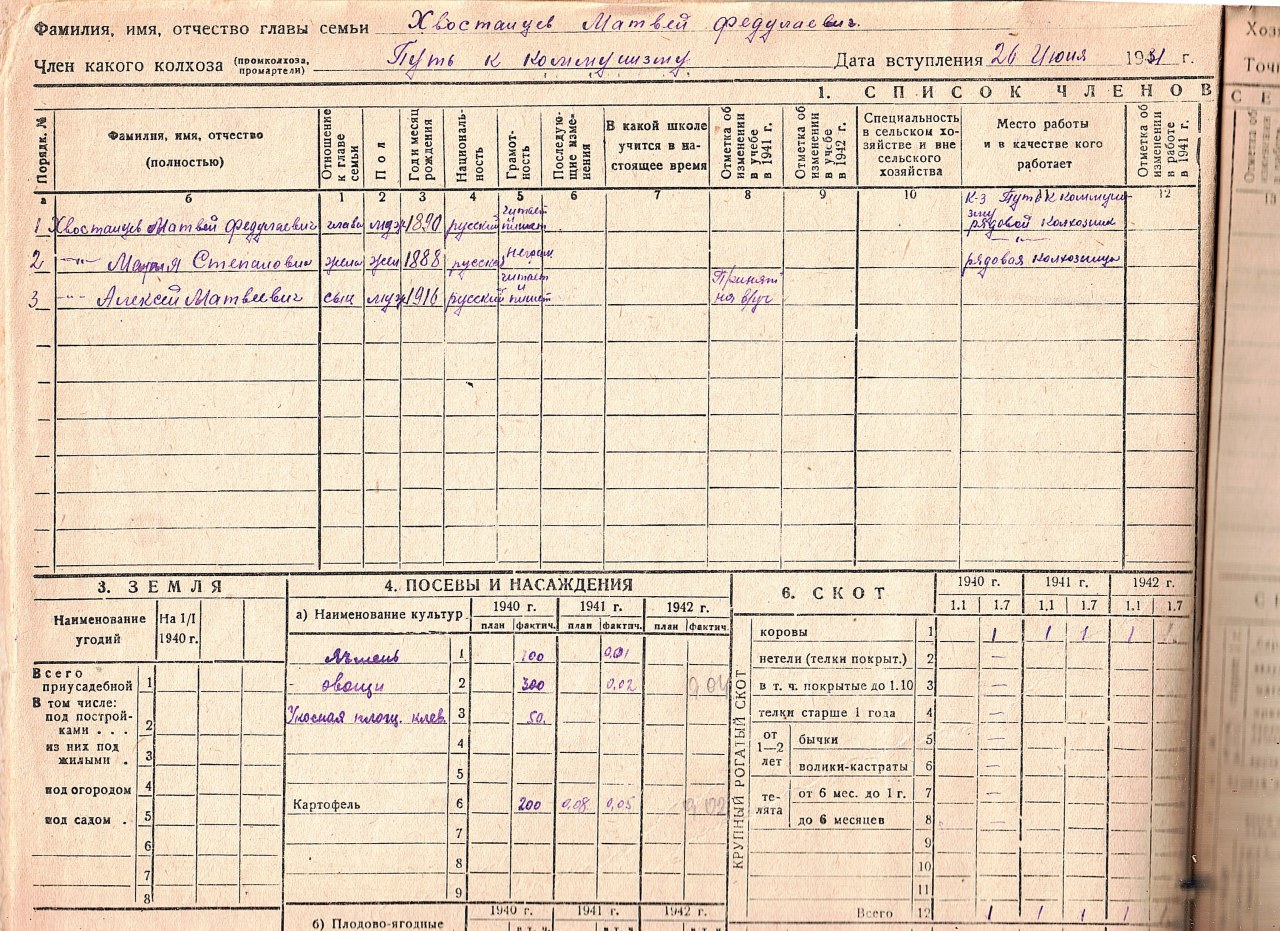 Фамилия, имя, отчество главы семьи Хвостанцев Матвей Федулаевич.
Член какого колхоза (промколхоза, промартели) Путь к коммунизму Дата вступления 26 Июня 1931 г.
1. СПИСОК ЧЛЕНОВ
Порядк. № Фамилия, имя, отчество (полностью) Отношение к главе семьи Пол Год и месяц рождения Националь-ность Грамот-ность Последую-щие изме-нения В какой школе учится в на-стоящее время Отметка об изменении в учебе в 1941 г. Отметка об изменении в учебе в 1942 г. Специальность в сельском хо-зяйстве и вне сельского хозяйства Место работы и в качестве кого работает Отметка об изменении в работе в 1941 г.
а б 1 2 3 4 5 6 7 8 9 10 11 12
1 Хвостанцев Матвей Федулаевич глава муж 1890 русский читает пишет К-з Путь к коммуни-зму рядовой колхозник
2 -"- Мария Степановна жена жен 1888 русская неграм -"- рядовая колхозница
3 -"- Алексей Матвеевич сын муж 1916 русский читает и пишет Принят на в/уч
3. ЗЕМЛЯ
Наименование угодий На 1/I 1940 г.
Всего приусадебной 1
В том числе: под построй-ками . . . 2
из них под жилыми . 3
под огородом 4
под садом . 5
6
7
8
4. ПОСЕВЫ И НАСАЖДЕНИЯ
а) Наименование культур 1940 г. 1941 г. 1942 г.
план фактич. план фактич. план фактич.
Ячмень 1 200 0,01
овощи 2 300 0,02 0,04
Укосная площ. клев. 3 50.
4
5
Картофель 6 200 0,08 0,05 0,02
7
8
9
1940 г. 1941 г. 1942 г.
б) Плодово-ягодные в т. ч. в т. ч. в т. ч.
6. СКОТ
1940 г. 1941 г. 1942 г.
1.1 1.7 1.1 1.7 1.1 1.7
КРУПНЫЙ РОГАТЫЙ СКОТ
коровы 1 1 1 1 1 1
нетели (телки покрыт.) 2 —
в т. ч. покрытые до 1.10 3 —
телки старше 1 года 4 —
от 1—2 лет бычки 5 —
волики-кастраты 6 —
те-лята от 6 мес. до 1 г. 7 —
до 6 месяцев 8
9
10
11
Всего 12 1 1 1 1